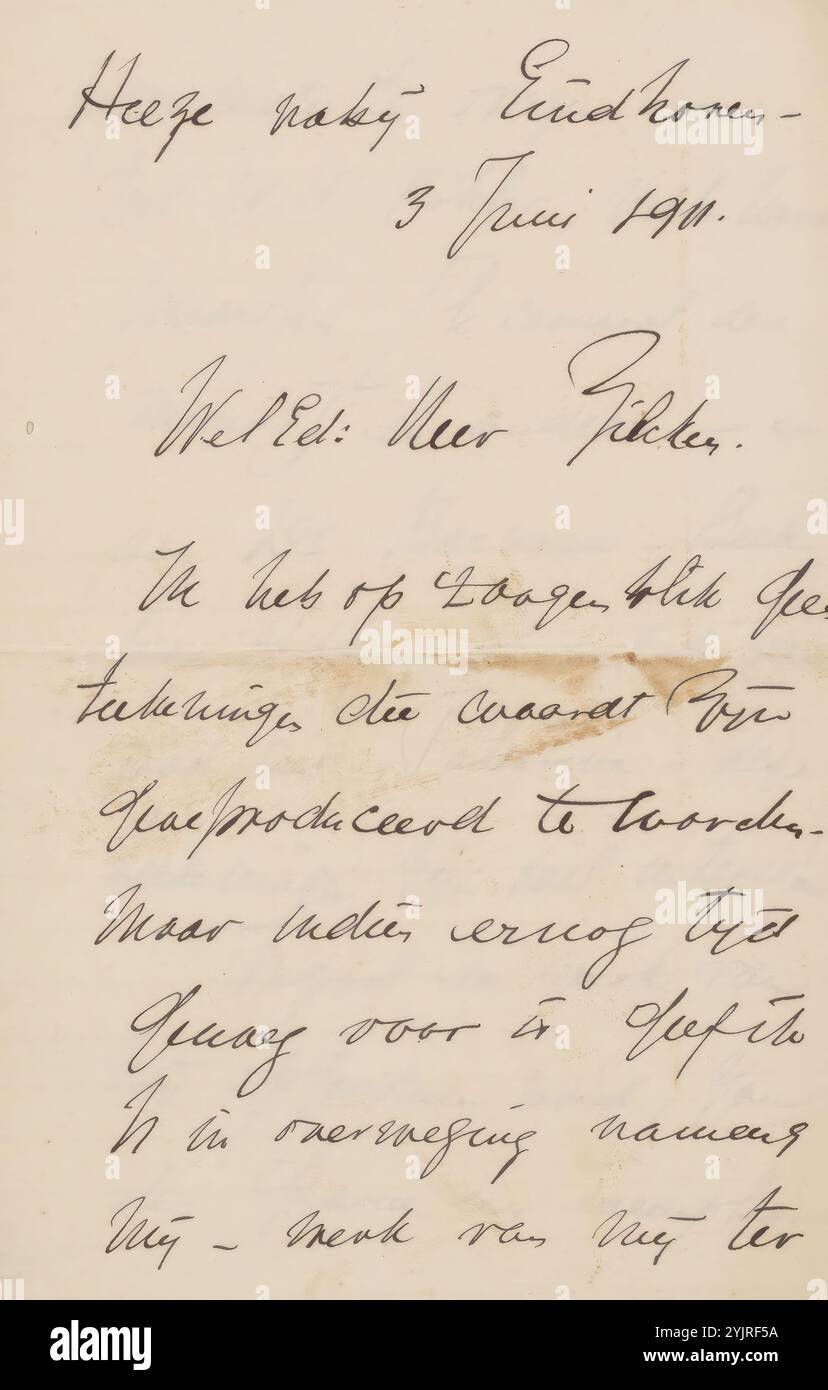 Heeze nabij Eindhoven –
3 Juni 1911.
WelEd: Heer Zilcken.
Ik heb op 't oogenblik geen
teekeningen die waardt zijn
gereproduceerd te worden –
Maar indien er nog tijd
genoeg voor is geef ik
U in overweging namens
mij – werk van mij ter
alamy
Image ID: 2YJRF5A
www.alamy.com